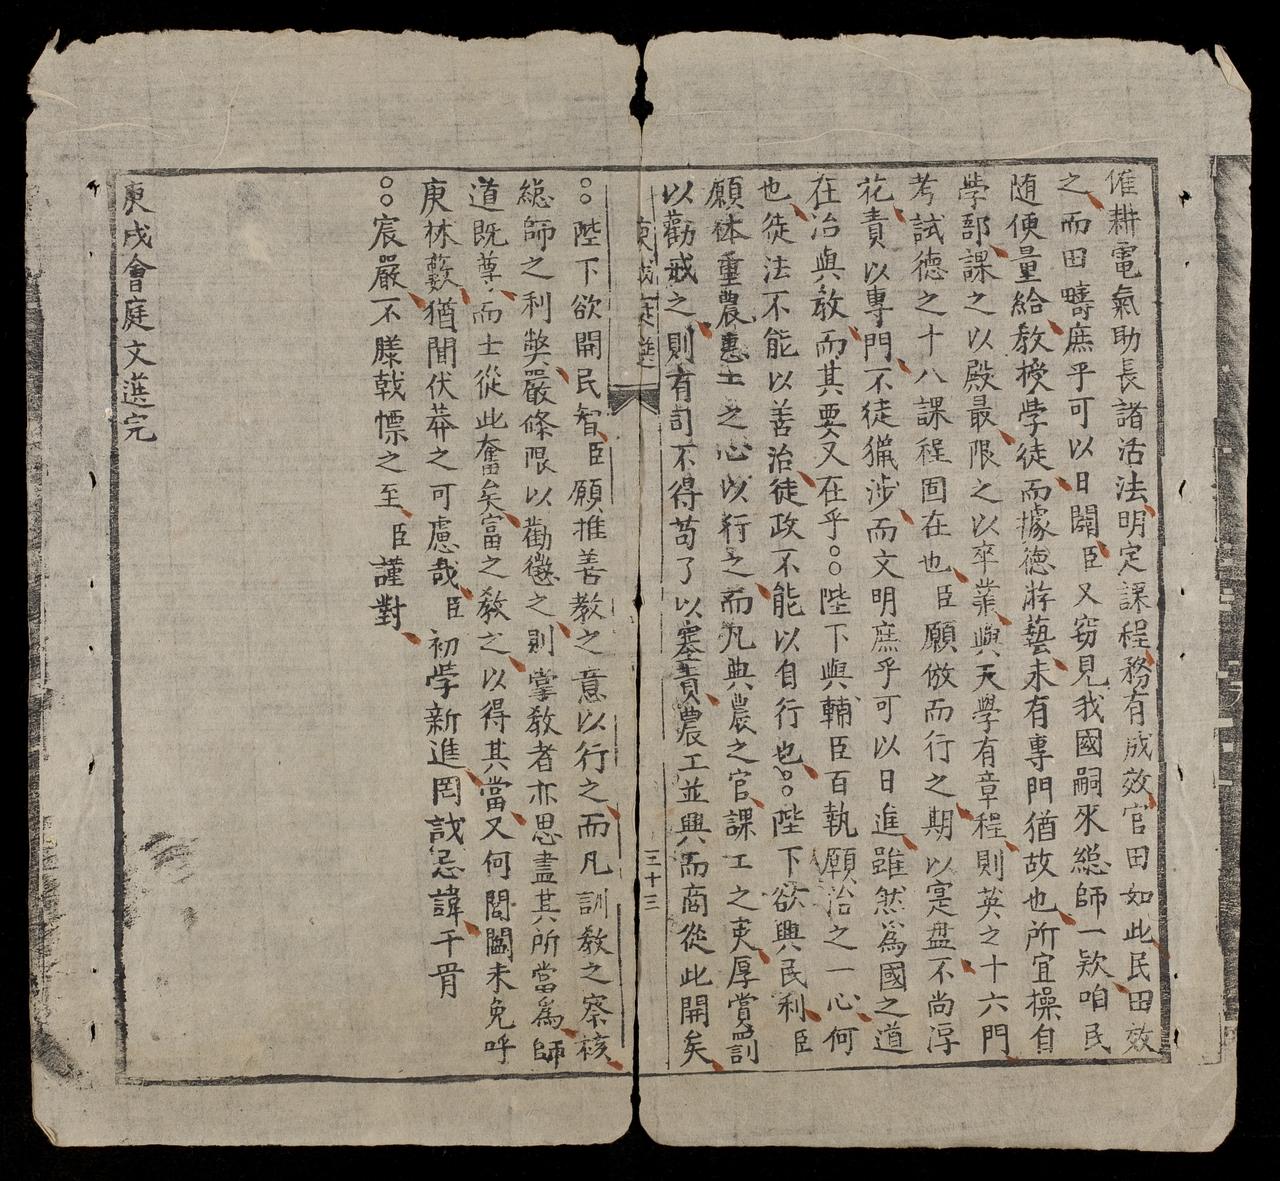 催耕電氣助長諸活法明定課程務有成效官田如此民田效
之而田疇庶乎可以日闢臣又窃見我國嗣來總師一欵咱民
随便量給教授学徒而據德游藝未有專門猶故也所宜操自
學部課之以殿最限之以卒業與天學有章程則英之十六門
考試德之十八課程固在也臣願倣而行之期以寔盘不尚浮
花責以專門不徒獵涉而文明庶乎可以日進雖然為國之道
在治與教而其要又在乎○○陛下與輔臣百執願治之一心何
也徒法不能以善治徒政不能以自行也○○陛下欲興民利臣
願体重農惠工之心以行之而凡典農之官課工之吏厚賞罰
以勸戒之則有司不得苟了以塞責農工並興而商從此開矣
庚戌庭選
三十三
○○陛下欲開民智臣願推善教之意以行之而凡訓教之察核
總師之利獘嚴條限以勸懲之則掌教者亦思盡其所當為師
道既尊而士從此奮矣富之教之以得其當又何閭閻未免呼
庚林藪猶聞伏莽之可慮哉臣初学新進罔識忌諱干冒
○○宸嚴不勝戟慄之至臣謹對
庚戌會庭文選完